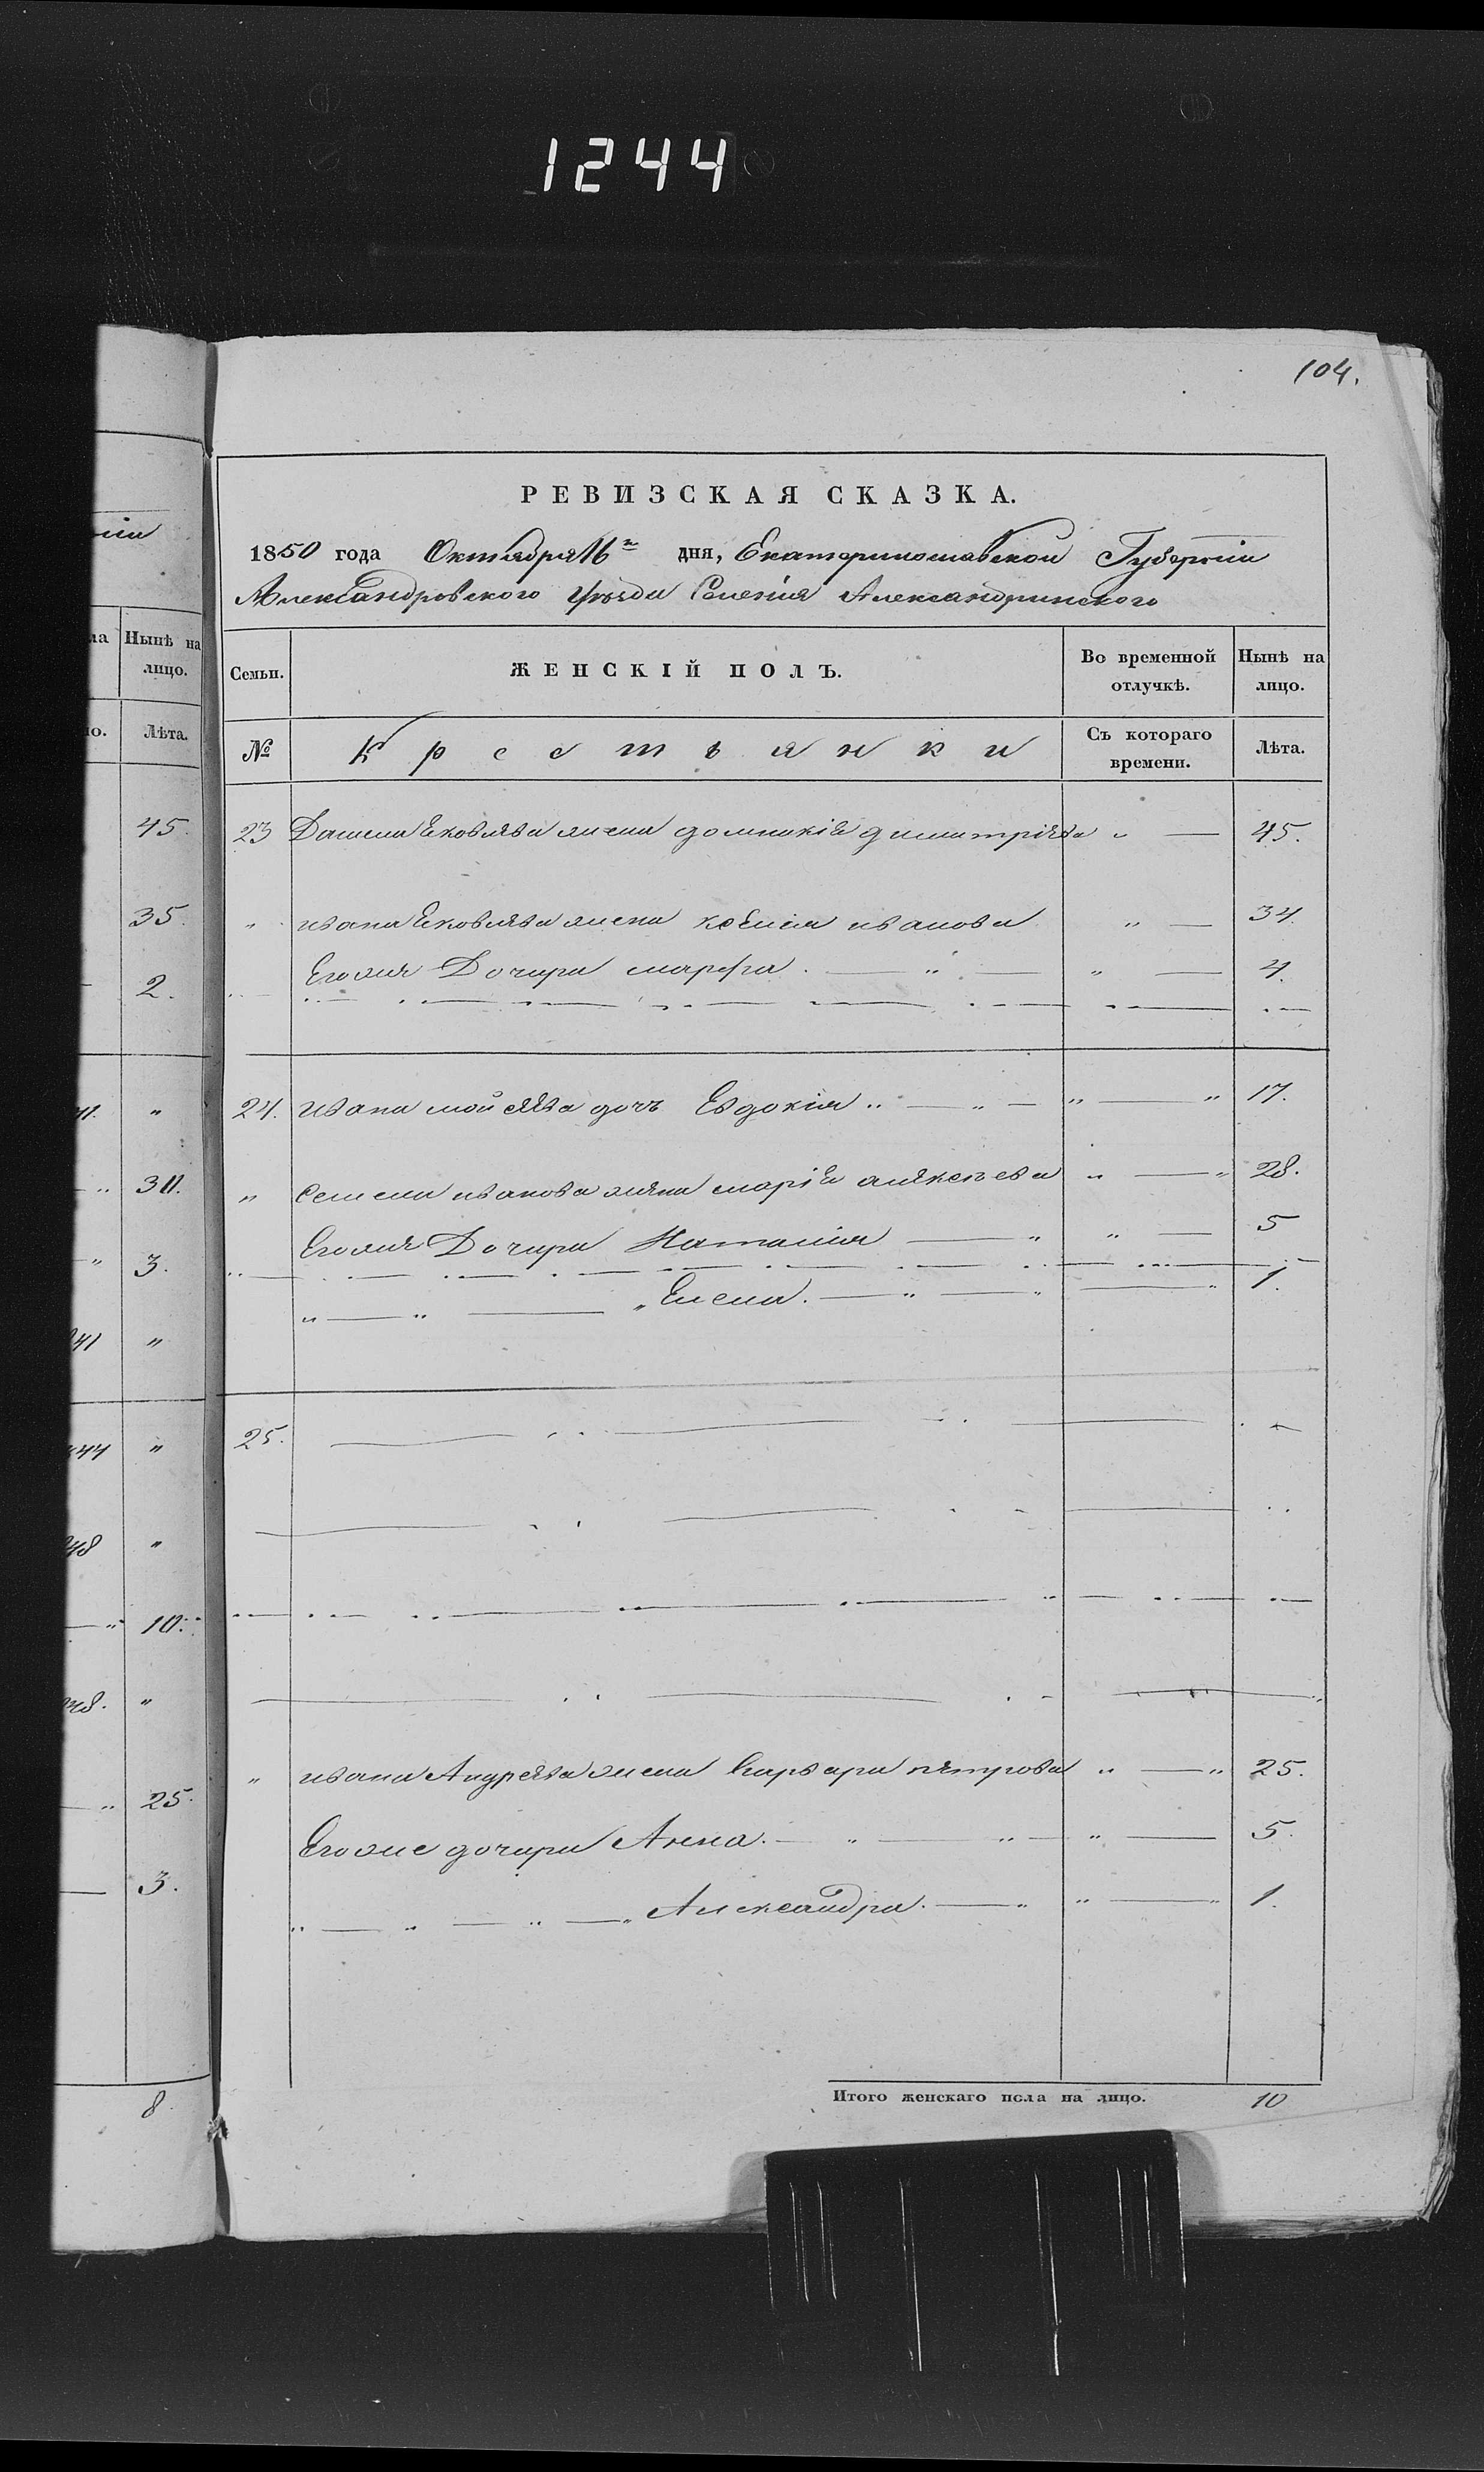 1244
104.
РЕВИЗСКАЯ СКАЗКА.
1850 года Октября 16го дня, Екатеринославской Губерніи
Александровского уезда Селенія Александринского
ла Нынѣ на лицо.
Семьи. ЖЕНСКІЙ ПОЛЪ. Во временной отлучкѣ. Нынѣ на лицо.
Лѣта.
№ Крестьянки Съ котораго времени. Лѣта.
45. 23 Яковлева жена домникія димитріева " — 45.
35. " ивана Яковлева жена ксенія иванова " — 34.
Егожъ Дочери марфа. — " " — 4.
2.
" 24. ивана мойсеева дочъ Евдокія " — " — " — " 17.
30. " семена иванова жена марія алексеева " — " 28.
Егожъ Дочери Наталія — " " — 5
3. " — " — " Елена. — " — " — " 1.
41 "
44 " 25.
48 "
— " 10.
48. "
" ивана Андреева жена Варвара петрова " — " 25.
— " 25.
Егоже дочери Анна. — " — " — " — 5.
— 3.
" — " — " — " Александра. — " " — " 1.
8. Итого женскаго пола на лицо. 10